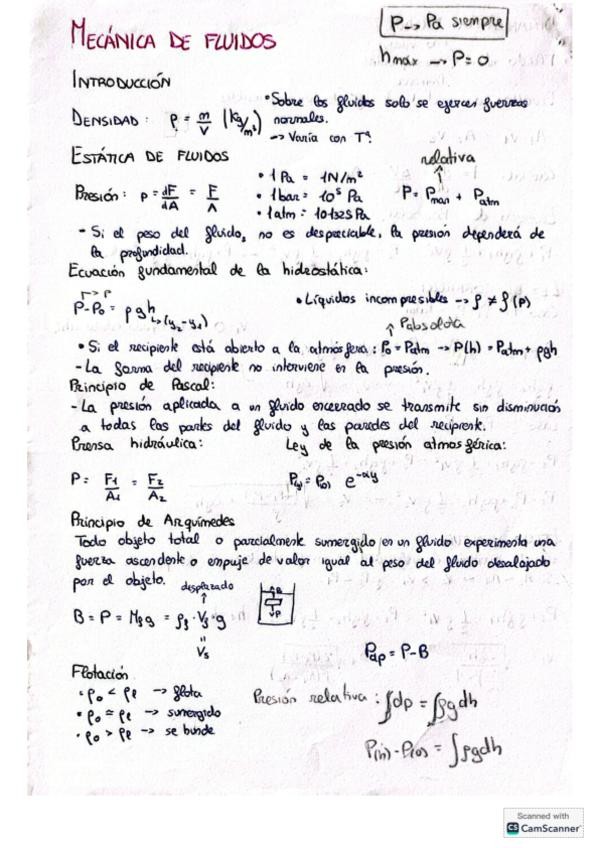 MECÁNICA DE FLUIDOS
P → Pa siempre
hmáx → P = 0
INTRODUCCIÓN
• Sobre los fluidos solo se ejercen fuerzas
DENSIDAD: ρ = m/V (kg/m³) normales.
→ Varía con Tª
ESTÁTICA DE FLUIDOS
relativa
↑
• 1 Pa = 1N/m²
Presión: P = dF/dA = F/A • 1 bar = 10⁵ Pa P = Pman + Patm
• 1 atm = 101325 Pa
- Si el peso del fluido, no es despreciable, la presión dependerá de
la profundidad.
Ecuación fundamental de la hidrostática:
P-P₀ = ρgh • Líquidos incompresibles → ρ ≠ f(P)
↳ (y₂-y₁)
↑ Pabsoluta
• Si el recipiente está abierto a la atmósfera: P₀ = Patm → P(h) = Patm + ρgh
- La forma del recipiente no interviene en la presión.
Principio de Pascal:
- La presión aplicada a un fluido encerrado se transmite sin disminución
a todas las partes del fluido y las paredes del recipiente.
Prensa hidráulica: Ley de la presión atmosférica:
P = F₁/A₁ = F₂/A₂ P(y) = P(0) e^-αy
Principio de Arquímedes
Todo objeto total o parcialmente sumergido en un fluido experimenta una
fuerza ascendente o empuje de valor igual al peso del fluido desalojado
por el objeto.
desplazado
↑
B = P = Mf g = ρf · Vf · g
=
Vs
Pap = P-B
Flotación
• ρo < ρl → flota
Presión relativa: ∫dp = ∫ρgdh
• ρo = ρl → sumergido
• ρo > ρl → se hunde
P(h) - P(0) = ∫ρgdh
Scanned with
CS CamScanner